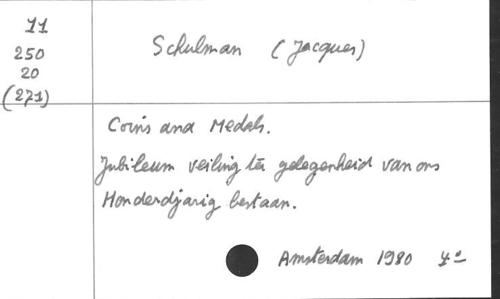 11
250
20
(271)
Schulman (Jacques)
Coins and Medals.
Jubileum veiling ter gelegenheid van ons
Honderdjarig bestaan.
Amsterdam 1980 4°